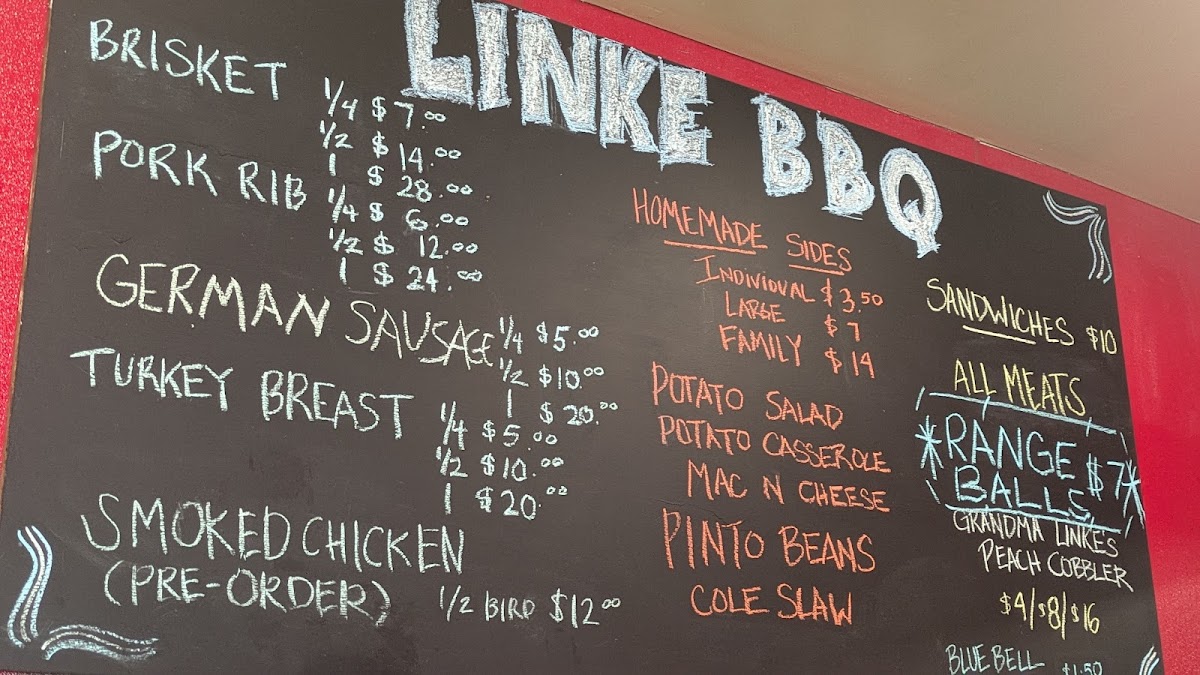 LINKE BBQ
BRISKET
1/4 $7.00
1/2 $14.00
1 $28.00
PORK RIB
1/4 $6.00
1/2 $12.00
1 $24.00
GERMAN SAUSAGE
1/4 $5.00
1/2 $10.00
1 $20.00
TURKEY BREAST
1/4 $5.00
1/2 $10.00
1 $20.00
SMOKED CHICKEN
(PRE-ORDER)
1/2 BIRD $12.00
HOMEMADE SIDES
INDIVIDUAL $3.50
LARGE $7
FAMILY $14
POTATO SALAD
POTATO CASSEROLE
MAC N CHEESE
PINTO BEANS
COLE SLAW
SANDWICHES $10
ALL MEATS
*RANGE BALLS $7*
GRANDMA LINKES
PEACH COBBLER
$4/$8/$16
BLUE BELL $1.50